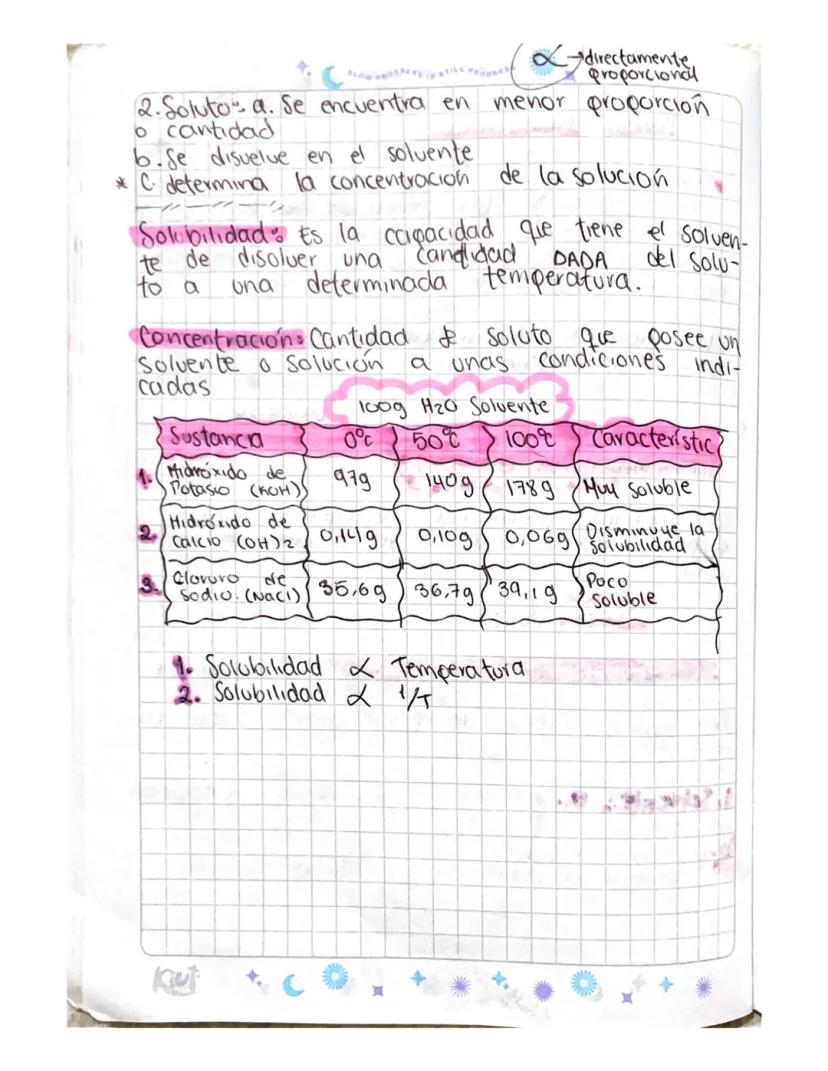 SLOW PROGRESS IS STILL PROGRESS
α → directamente
proporcional
2. Soluto: a. Se encuentra en menor proporción
o cantidad
b. Se disuelve en el solvente
* C. determina la concentración de la solución
Solubilidad: Es la capacidad que tiene el solven-
te de disolver una cantidad DADA del solu-
to a una determinada temperatura.
Concentración: Cantidad de soluto que posee un
solvente o solución a unas condiciones indi-
cadas
100g H2O Solvente
Sustanca 0°c 50°c 100°c Caracteristic
1. Hidróxido de
Potasio (KOH) 97g 140g 178g Muy soluble
2. Hidróxido de
Calcio (OH)2 0,14g 0,10g 0,06g Disminuye la
solubilidad
3. Cloruro de
sodio. (NaCl) 35,6g 36,7g 39,1g Poco
soluble
1. Solubilidad α Temperatura
2. Solubilidad α 1/T
Kiut